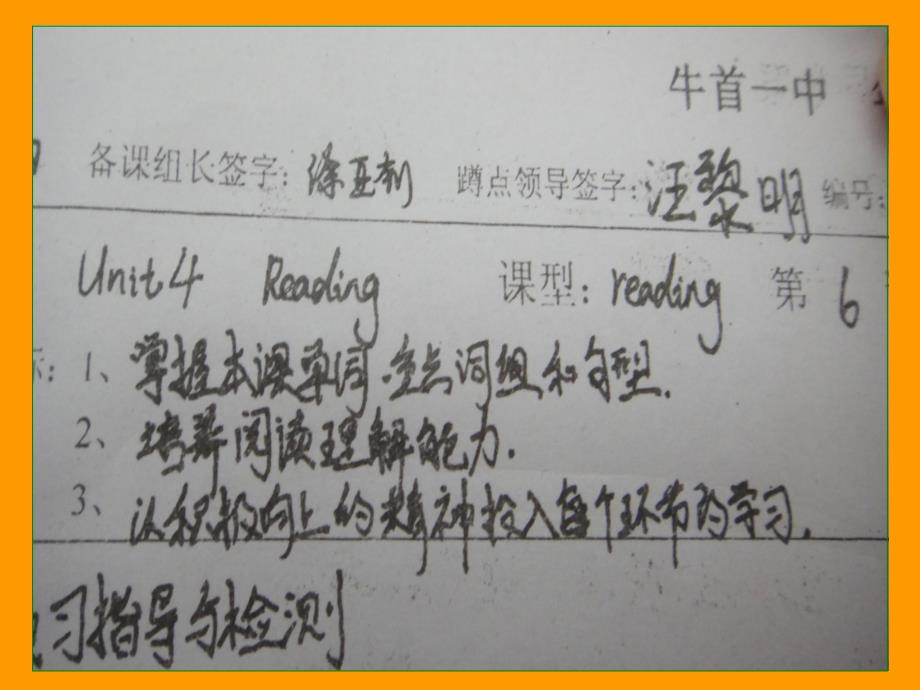 牛首一中
备课组长签字：涂亚利 蹲点领导签字：汪黎明 编号：
Unit 4 Reading 课型：reading 第 6
标：1、掌握本课单词、重点词组和句型.
2、培养阅读理解能力.
3、以积极向上的精神投入每个环节的学习.
习指导与检测